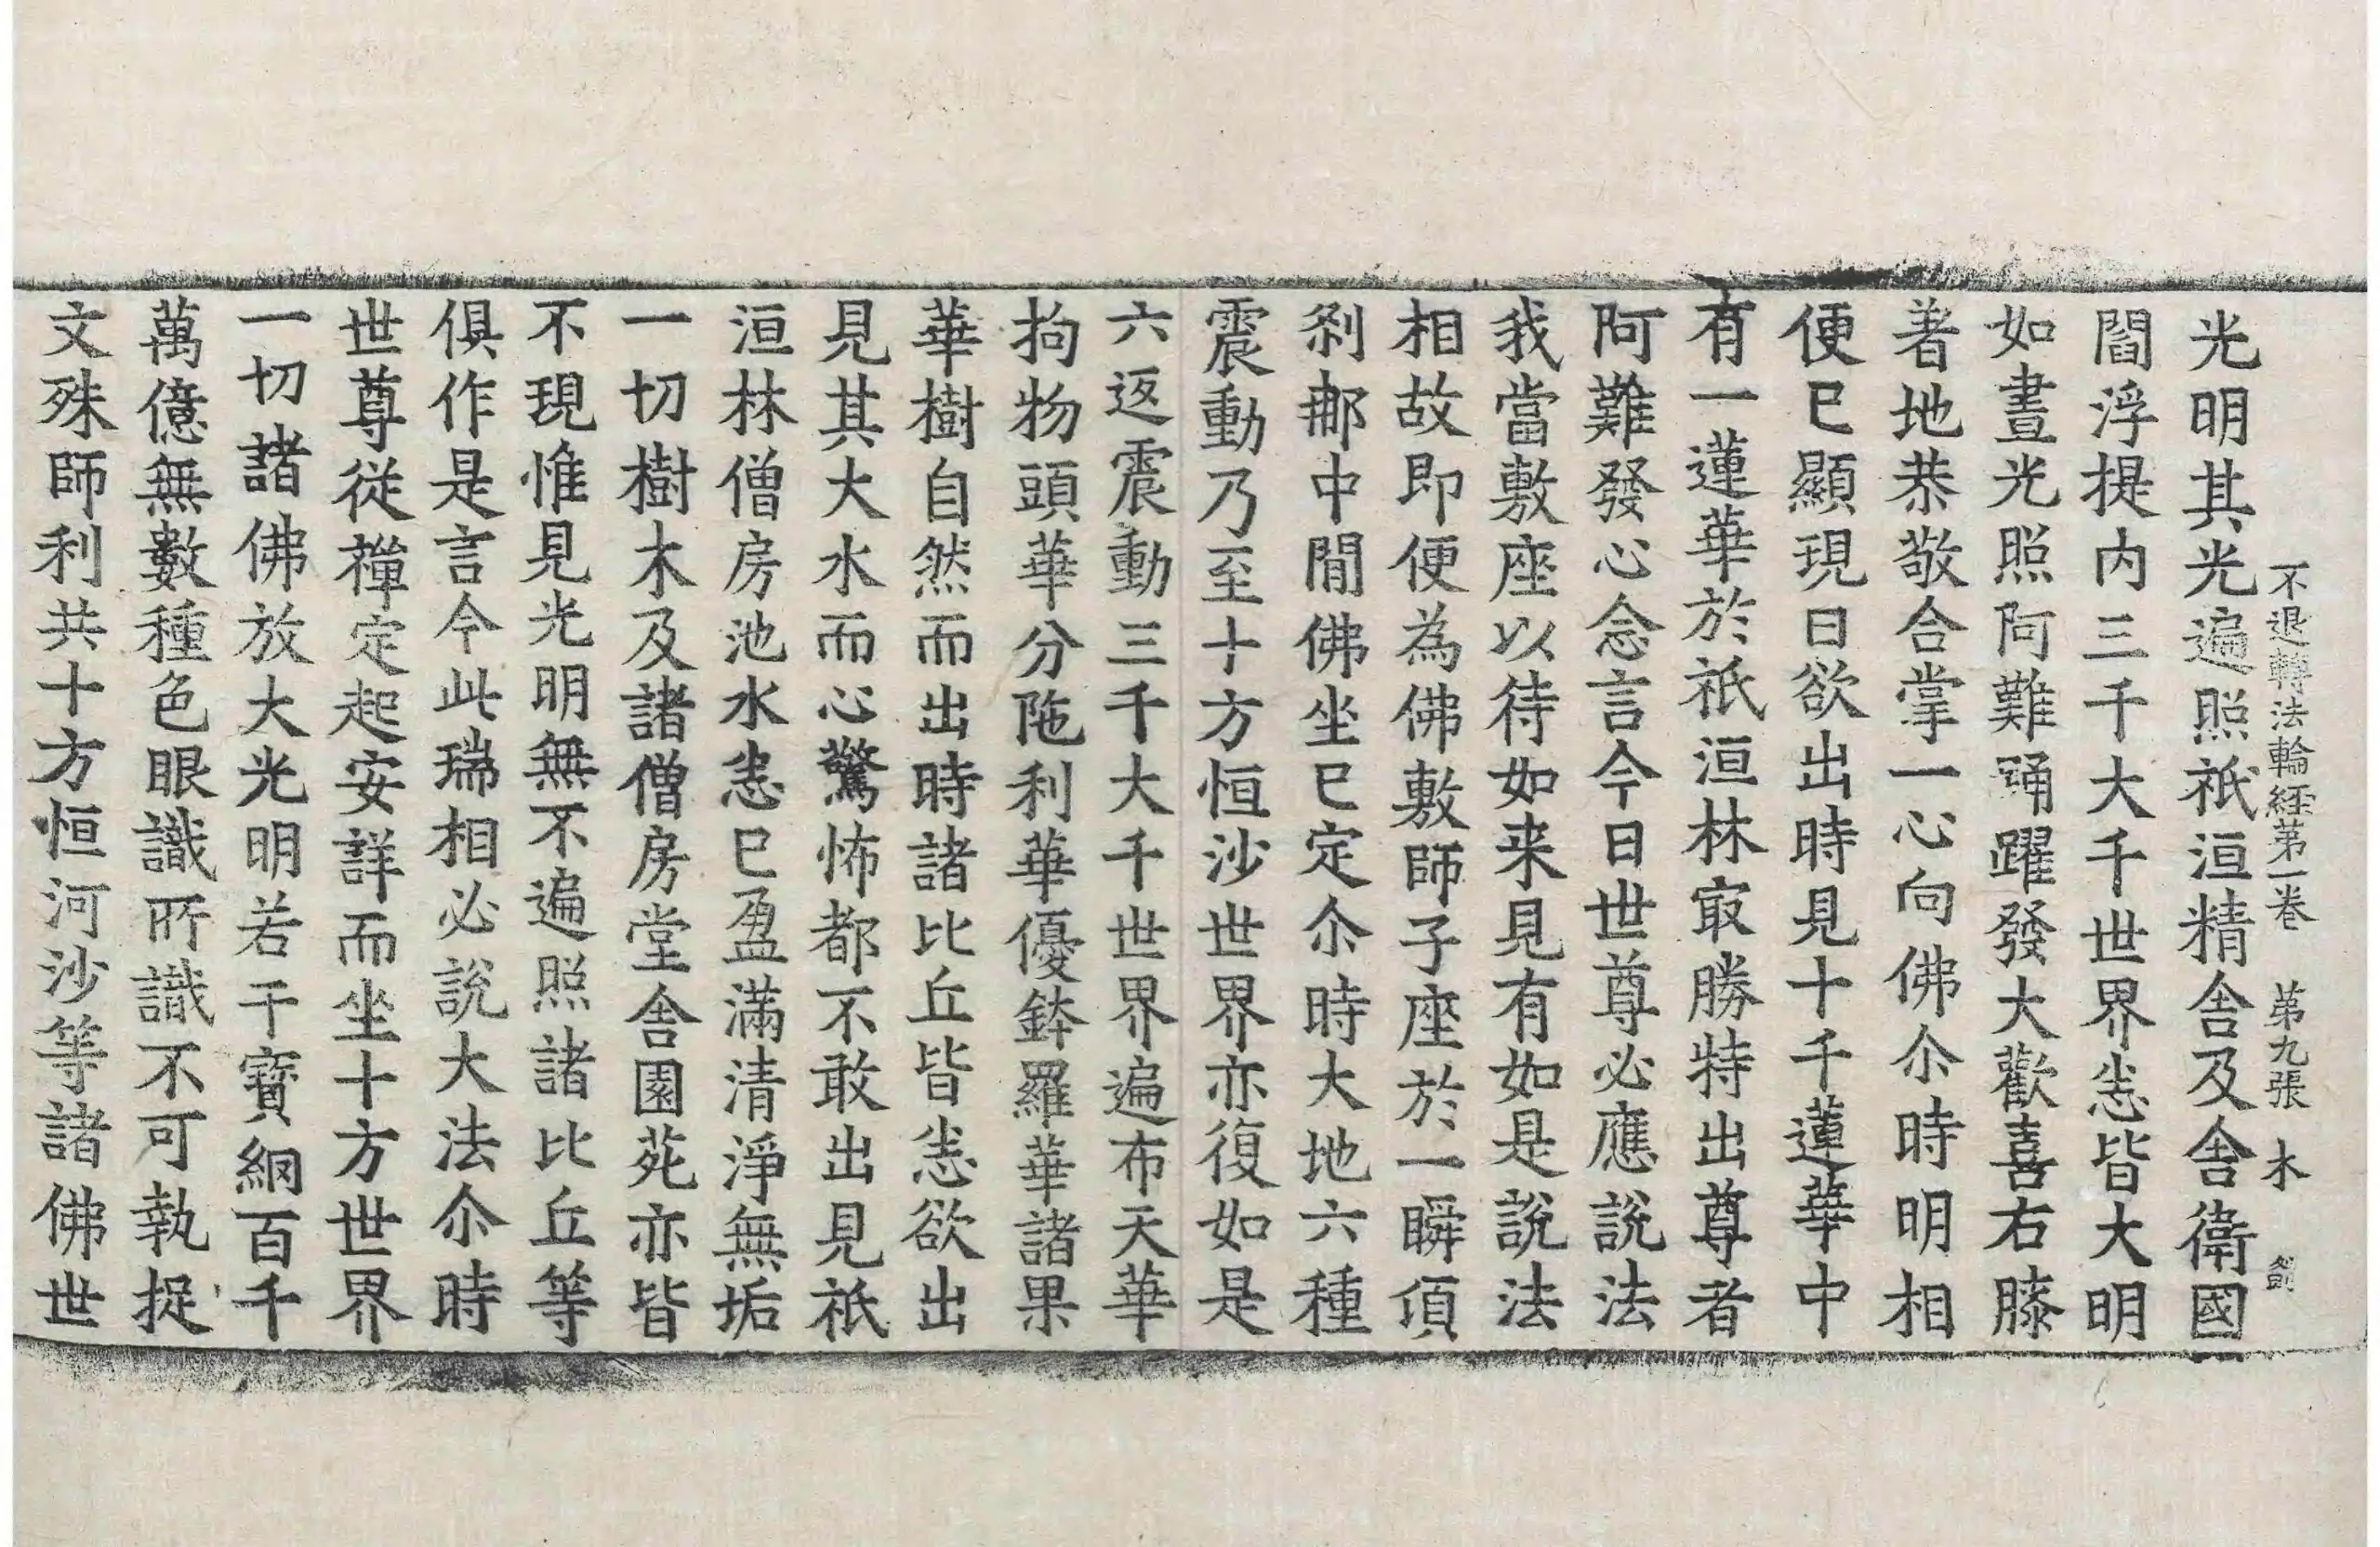 不退轉法輪經第一卷 第九張 木
光明其光遍照祇洹精舍及舍衛國
閻浮提内三千大千世界悉皆大明
如晝光照阿難踊躍發大歡喜右膝
著地恭敬合掌一心向佛尒時明相
便已顯現日欲出時見十千蓮華中
有一蓮華於祇洹林㝡勝特出尊者
阿難發心念言今日世尊必應說法
我當敷座以待如来見有如是說法
相故即便為佛敷師子座於一瞬頃
剎那中間佛坐已定尒時大地六種
震動乃至十方恒沙世界亦復如是
六返震動三千大千世界遍布天華
拘物頭華分陁利華優鉢羅華諸果
華樹自然而出時諸比丘皆悉欲出
見其大水而心驚怖都不敢出見祇
洹林僧房池水悉已盈滿清淨無垢
一切樹木及諸僧房堂舍園苑亦皆
不現惟見光明無不遍照諸比丘等
俱作是言今此瑞相必說大法尒時
世尊從禪定起安詳而坐十方世界
一切諸佛放大光明若干寶網百千
萬億無數種色眼識所識不可執捉
文殊師利共十方恒河沙等諸佛世